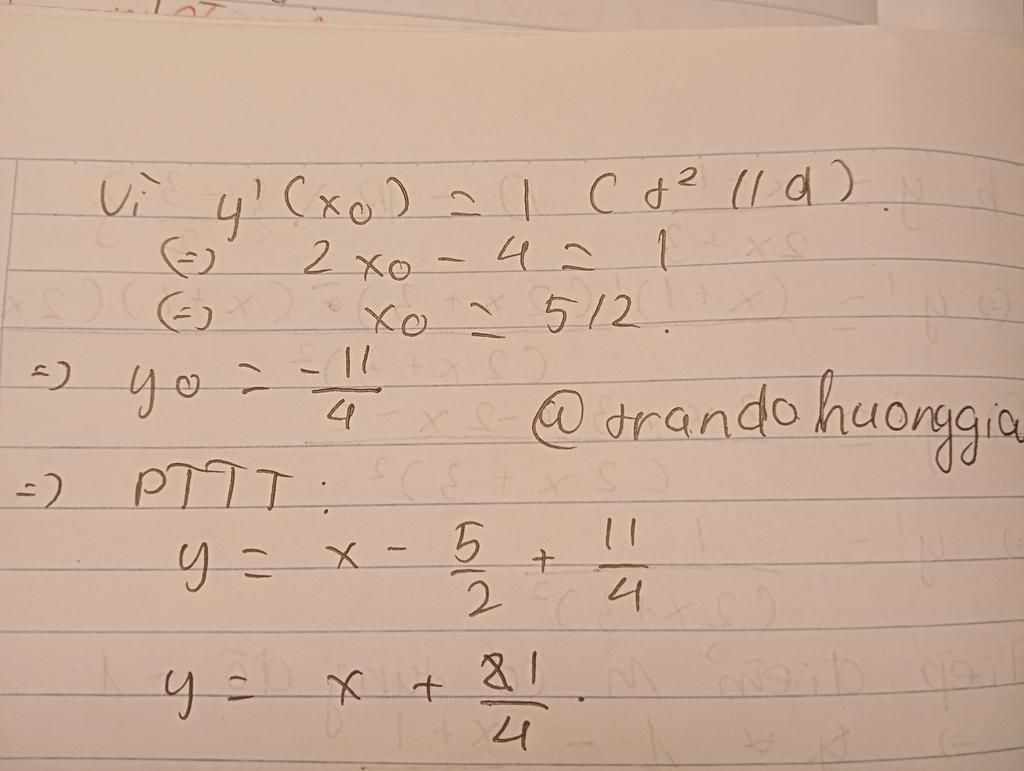 Vì y'(x0) = 1 (t² // d).
(=) 2x0 - 4 = 1
(=) x0 = 5/2.
=) y0 = -11/4
@trandohuonggia
=) PTTT:
y = x - 5/2 + 11/4
y = x + 21/4.